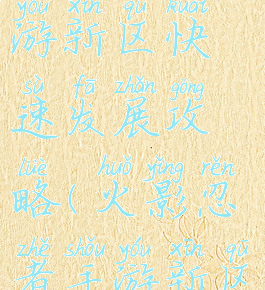 yóu xīn qū kuài
游新区快
sù fā zhǎn gōng
速发展攻
lüè huǒ yǐng rěn
略(火影忍
zhě shǒu yóu xīn qū
者手游新区